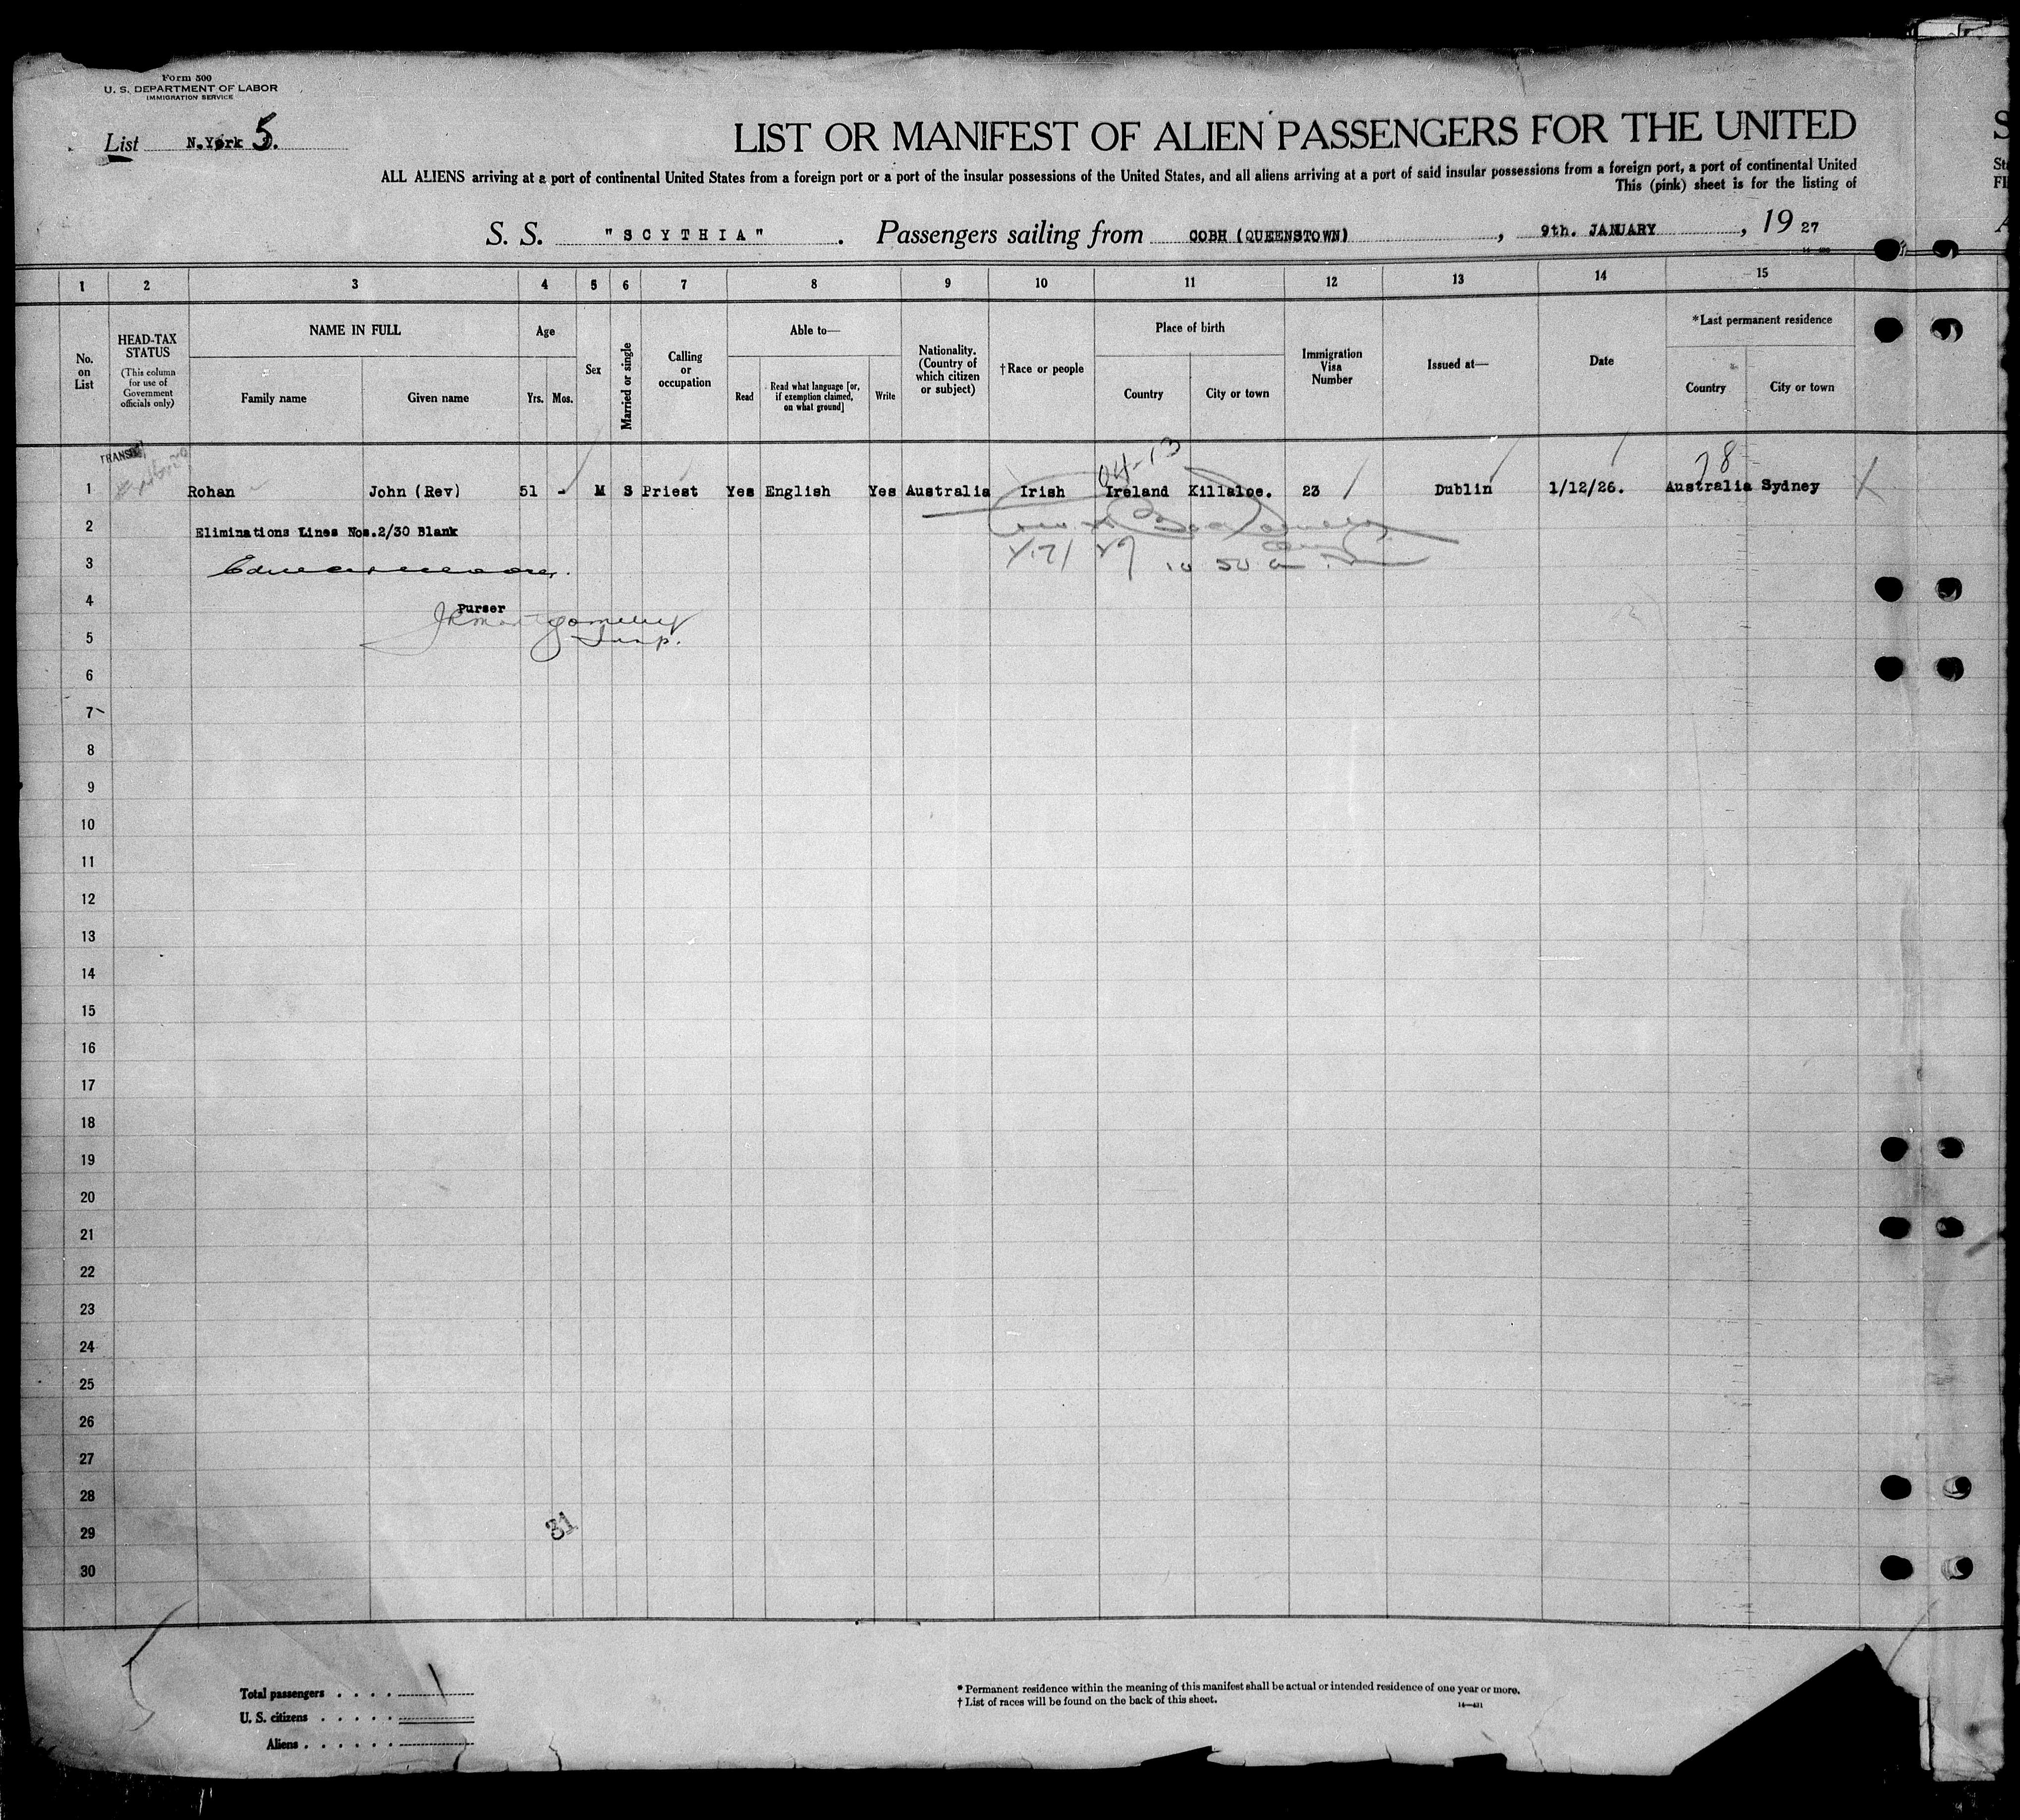 Form 500
U. S. DEPARTMENT OF LABOR
IMMIGRATION SERVICE
List N.York 5.
LIST OR MANIFEST OF ALIEN PASSENGERS FOR THE UNITED
ALL ALIENS arriving at a port of continental United States from a foreign port or a port of the insular possessions of the United States, and all aliens arriving at a port of said insular possessions from a foreign port, a port of continental United
This (pink) sheet is for the listing of
S. S. "SCYTHIA". Passengers sailing from COBH (QUEENSTOWN), 9th. JANUARY, 19 27
1 2 3 4 5 6 7 8 9 10 11 12 13 14 15
No. on List
HEAD-TAX STATUS
(This column for use of Government officials only)
NAME IN FULL
Family name Given name
Age
Yrs. Mos.
Sex
Married or single
Calling or occupation
Able to—
Read Read what language [or, if exemption claimed, on what ground] Write
Nationality. (Country of which citizen or subject)
†Race or people
Place of birth
Country City or town
Immigration Visa Number
Issued at—
Date
*Last permanent residence
Country City or town
TRANSIT
78
1 Rohan John (Rev) 51 - M S Priest Yes English Yes Australia Irish Ireland Killaloe. 23 Dublin 1/12/26. Australia Sydney
2 Eliminations Lines Nos.2/30 Blank
3
4 Purser
JRMontgomery
5 Insp.
6
7
8
9
10
11
12
13
14
15
16
17
18
19
20
21
22
23
24
25
26
27
28
29 31
30
Total passengers . . . . 1
U. S. citizens . . . . .
Aliens . . . . . .
* Permanent residence within the meaning of this manifest shall be actual or intended residence of one year or more.
† List of races will be found on the back of this sheet.
14—431